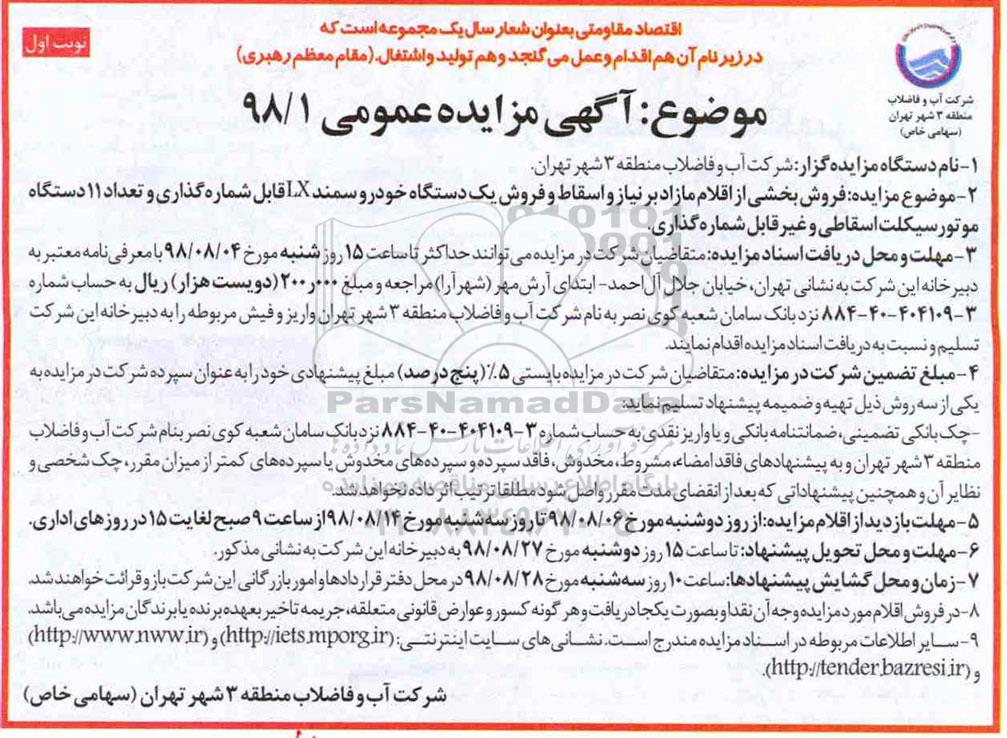 اقتصاد مقاومتی بعنوان شعار سال یک مجموعه است که
در زیر نام آن هم اقدام و عمل می گنجد و هم تولید و اشتغال. (مقام معظم رهبری)
نوبت اول
شرکت آب و فاضلاب
منطقه ۳ شهر تهران
(سهامی خاص)
موضوع: آگهی مزایده عمومی ۹۸/۱
۱-نام دستگاه مزایده گزار: شرکت آب و فاضلاب منطقه ۳ شهر تهران.
۲-موضوع مزایده: فروش بخشی از اقلام مازاد بر نیاز و اسقاط و فروش یک دستگاه خودرو سمند LX قابل شماره گذاری و تعداد ۱۱ دستگاه
موتور سیکلت اسقاطی و غیر قابل شماره گذاری.
۳-مهلت و محل دریافت اسناد مزایده: متقاضیان شرکت در مزایده می توانند حداکثر تا ساعت ۱۵ روز شنبه مورخ ۹۸/۰۸/۰۴ با معرفی نامه معتبر به
دبیرخانه این شرکت به نشانی تهران، خیابان جلال آل احمد- ابتدای آرش مهر (شهرآرا) مراجعه و مبلغ ۲۰۰٫۰۰۰ (دویست هزار) ریال به حساب شماره
۳-۴۰۴۱۰۹-۴۰-۸۸۴ نزد بانک سامان شعبه کوی نصر به نام شرکت آب و فاضلاب منطقه ۳ شهر تهران واریز و فیش مربوطه را به دبیرخانه این شرکت
تسلیم و نسبت به دریافت اسناد مزایده اقدام نمایند.
۴-مبلغ تضمین شرکت در مزایده: متقاضیان شرکت در مزایده بایستی ۵٪ (پنج درصد) مبلغ پیشنهادی خود را به عنوان سپرده شرکت در مزایده به
یکی از سه روش ذیل تهیه و ضمیمه پیشنهاد تسلیم نماید:
-چک بانکی تضمینی، ضمانتنامه بانکی و یا واریز نقدی به حساب شماره ۳-۴۰۴۱۰۹-۴۰-۸۸۴ نزد بانک سامان شعبه کوی نصر بنام شرکت آب و فاضلاب
منطقه ۳ شهر تهران و به پیشنهادهای فاقد امضاء، مشروط، مخدوش، فاقد سپرده و سپرده های مخدوش یا سپرده های کمتر از میزان مقرر، چک شخصی و
نظایر آن و همچنین پیشنهاداتی که بعد از انقضای مدت مقرر واصل شود مطلقا ترتیب اثر داده نخواهد شد.
۵-مهلت بازدید از اقلام مزایده: از روز دوشنبه مورخ ۹۸/۰۸/۰۶ تا روز سه شنبه مورخ ۹۸/۰۸/۱۴ از ساعت ۹ صبح لغایت ۱۵ در روزهای اداری.
۶-مهلت و محل تحویل پیشنهاد: تا ساعت ۱۵ روز دوشنبه مورخ ۹۸/۰۸/۲۷ به دبیرخانه این شرکت به نشانی مذکور.
۷-زمان و محل گشایش پیشنهادها: ساعت ۱۰ روز سه شنبه مورخ ۹۸/۰۸/۲۸ در محل دفتر قراردادها و امور بازرگانی این شرکت باز و قرائت خواهند شد.
۸-در فروش اقلام مورد مزایده وجه آن نقدا و بصورت یکجا دریافت و هر گونه کسور و عوارض قانونی متعلقه، جریمه تاخیر بعهده برنده یا برندگان مزایده می باشد.
۹-سایر اطلاعات مربوطه در اسناد مزایده مندرج است. نشانی های سایت اینترنتی: (http://iets.mporg.ir) و (http://www.nww.ir)
و (http://tender.bazresi.ir).
شرکت آب و فاضلاب منطقه ۳ شهر تهران (سهامی خاص)
ParsNamadData
پایگاه اطلاع رسانی مناقصه و مزایده